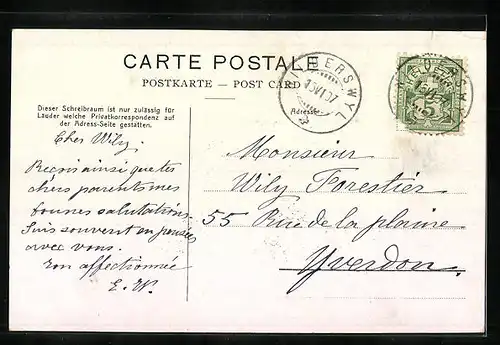 CARTE POSTALE
POSTKARTE — POST CARD
Dieser Schreibraum ist nur zulässig für
Länder welche Privatkorrespondenz auf
der Adress-Seite gestatten.
Adresse
WILDERSWYL
15 VI 07
5
Cher Wily.
Reçois ainsi que tes
chers parents mes
bonnes salutations.
Suis souvent en pensées
avec vous.
ton affectionnée
E. W.
Monsieur
Wily Forestier
55 Rue de la plaine
Yverdon.